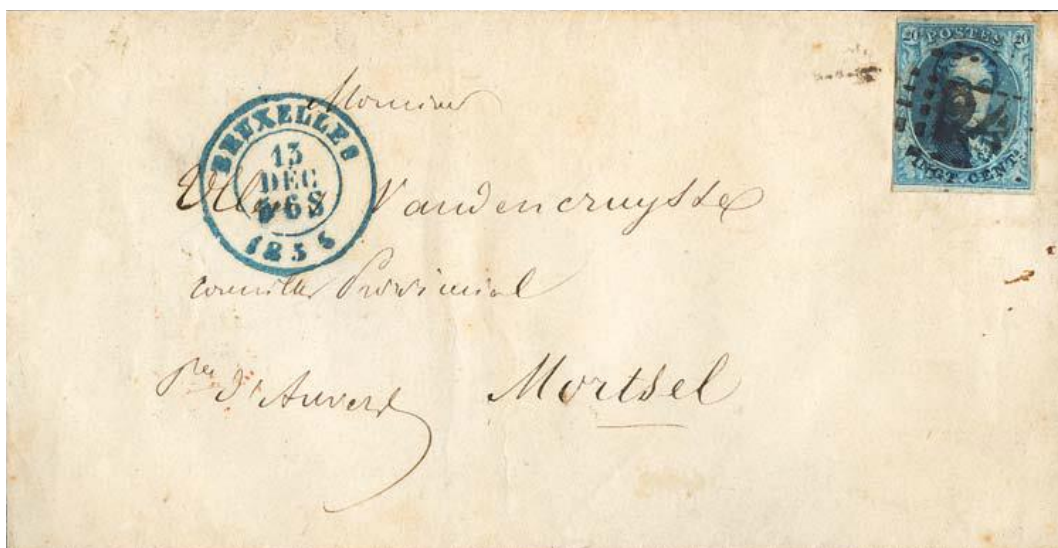 20 POSTES 20
VINGT CENTS
24
BRUXELLES
13
DEC
6S
1855
Monsieur
Vandencruysse
conseiller Provincial
pce d'Anvers
Mortsel